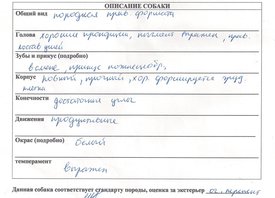 ОПИСАНИЕ СОБАКИ
Общий вид породися прав. формата
Голова хорошие пропорции, пигмент выражен, прав.
постав ушей
Зубы и прикус (подробно)
полные, прикус ножницеобр.
Корпус ровный, прочный, хор. формируется груд.
клетка
Конечности достаточные углы
Движения продуктивные
Окрас (подробно) белый
темперамент
выражен
Данная собака соответствует стандарту породы, оценка за экстерьер оч. перспект